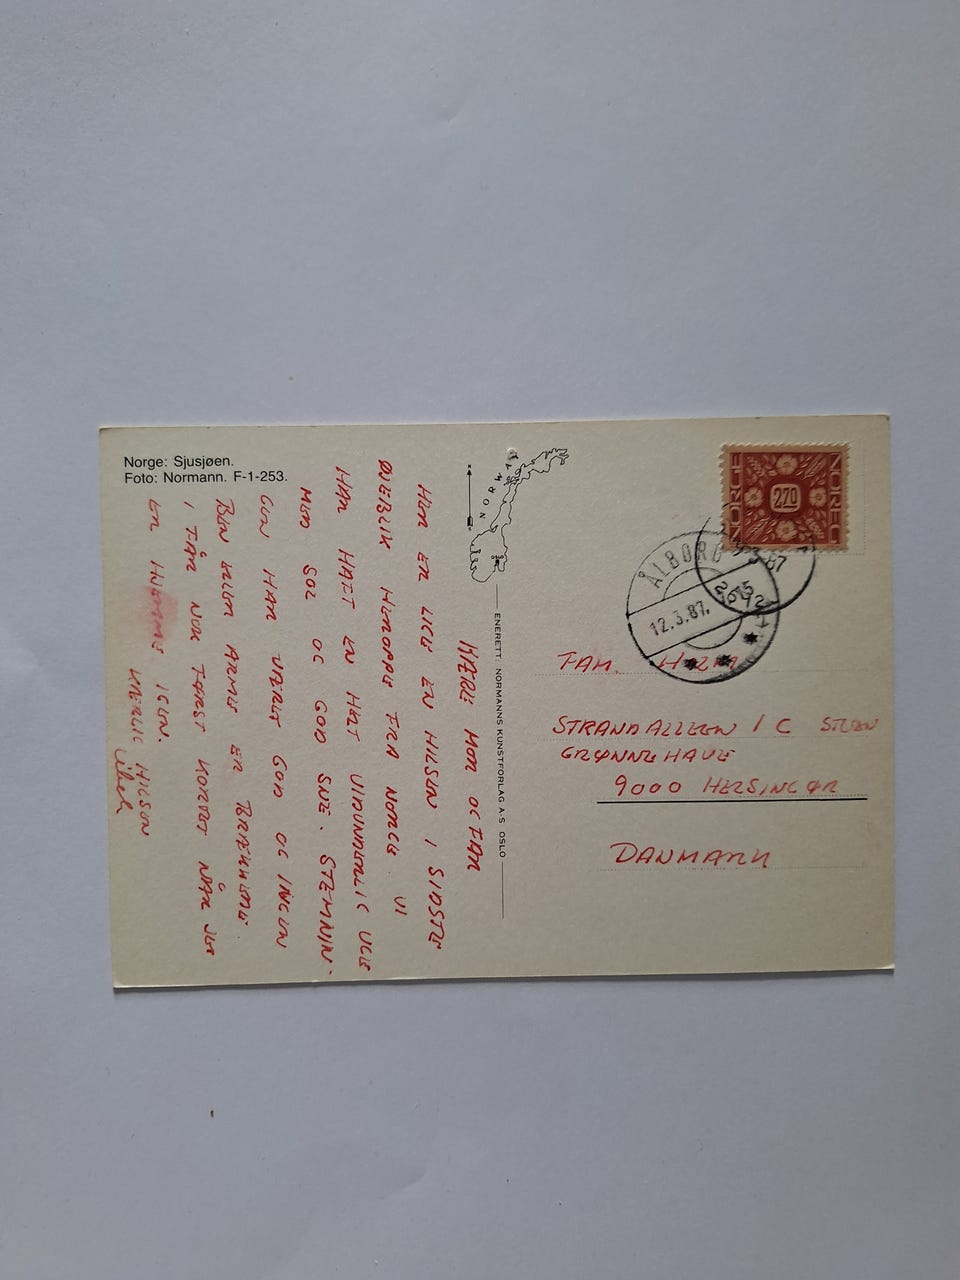 Norge: Sjusjøen.
Foto: Normann. F-1-253.
KÆRE MOR OG FAR
HER ER LIGE EN HILSEN I SIDSTE
ØJEBLIK HEROPPE FRA NORGE. VI
HAR HAFT EN HEL VIDUNDERLIG UGE
MED SOL OG GOD SNE. STEMNIN-
GEN HAR VÆRET GOD OG INGEN
BEN ELLER ARME ER BRÆKKEDE.
I FÅR NOK FØRST KORTET NÅR JEG
ER HJEMME IGEN.
KÆRLIG HILSEN
NORWAY
ENERETT: NORMANNS KUNSTFORLAG A-S OSLO
NORGE 2,70 NORGE
ÅLBORG
12.3.87.
FAM.
STRANDALLEEN 1 C STUEN
GRØNNEHAVE
9000 HELSINGØR
DANMARK